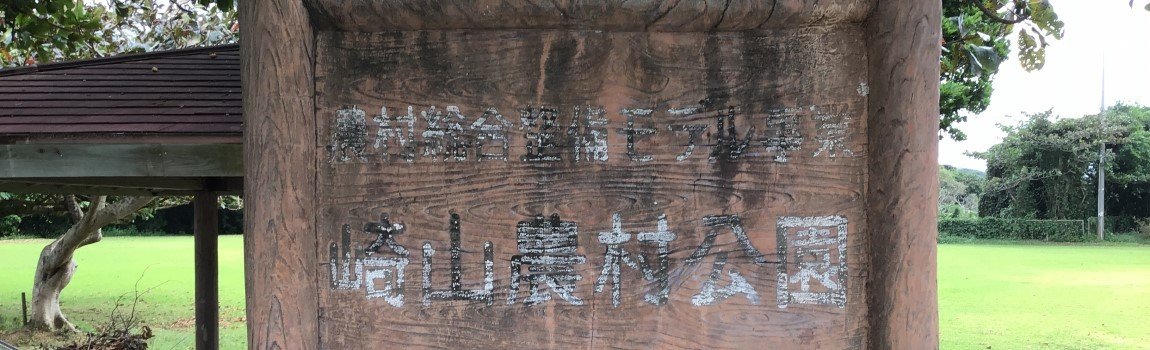 農村総合整備モデル事業
崎山農村公園